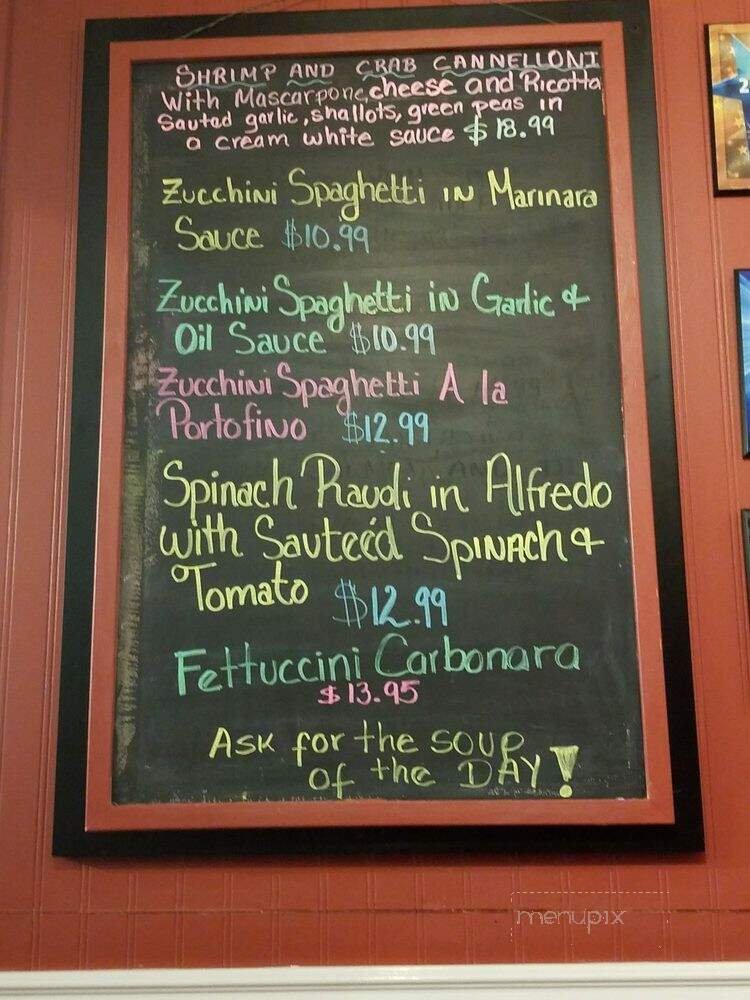 SHRIMP AND CRAB CANNELLONI
With Mascarpone, cheese and Ricotta
Sautad garlic, shallots, green peas in
a cream white sauce $18.99
Zucchini Spaghetti in Marinara
Sauce $10.99
Zucchini Spaghetti in Garlic &
Oil Sauce $10.99
Zucchini Spaghetti A la
Portofino $12.99
Spinach Ravoli in Alfredo
with Sauteéd Spinach &
Tomato $12.99
Fettuccini Carbonara
$13.95
Ask for the soup
of the DAY!
menupix